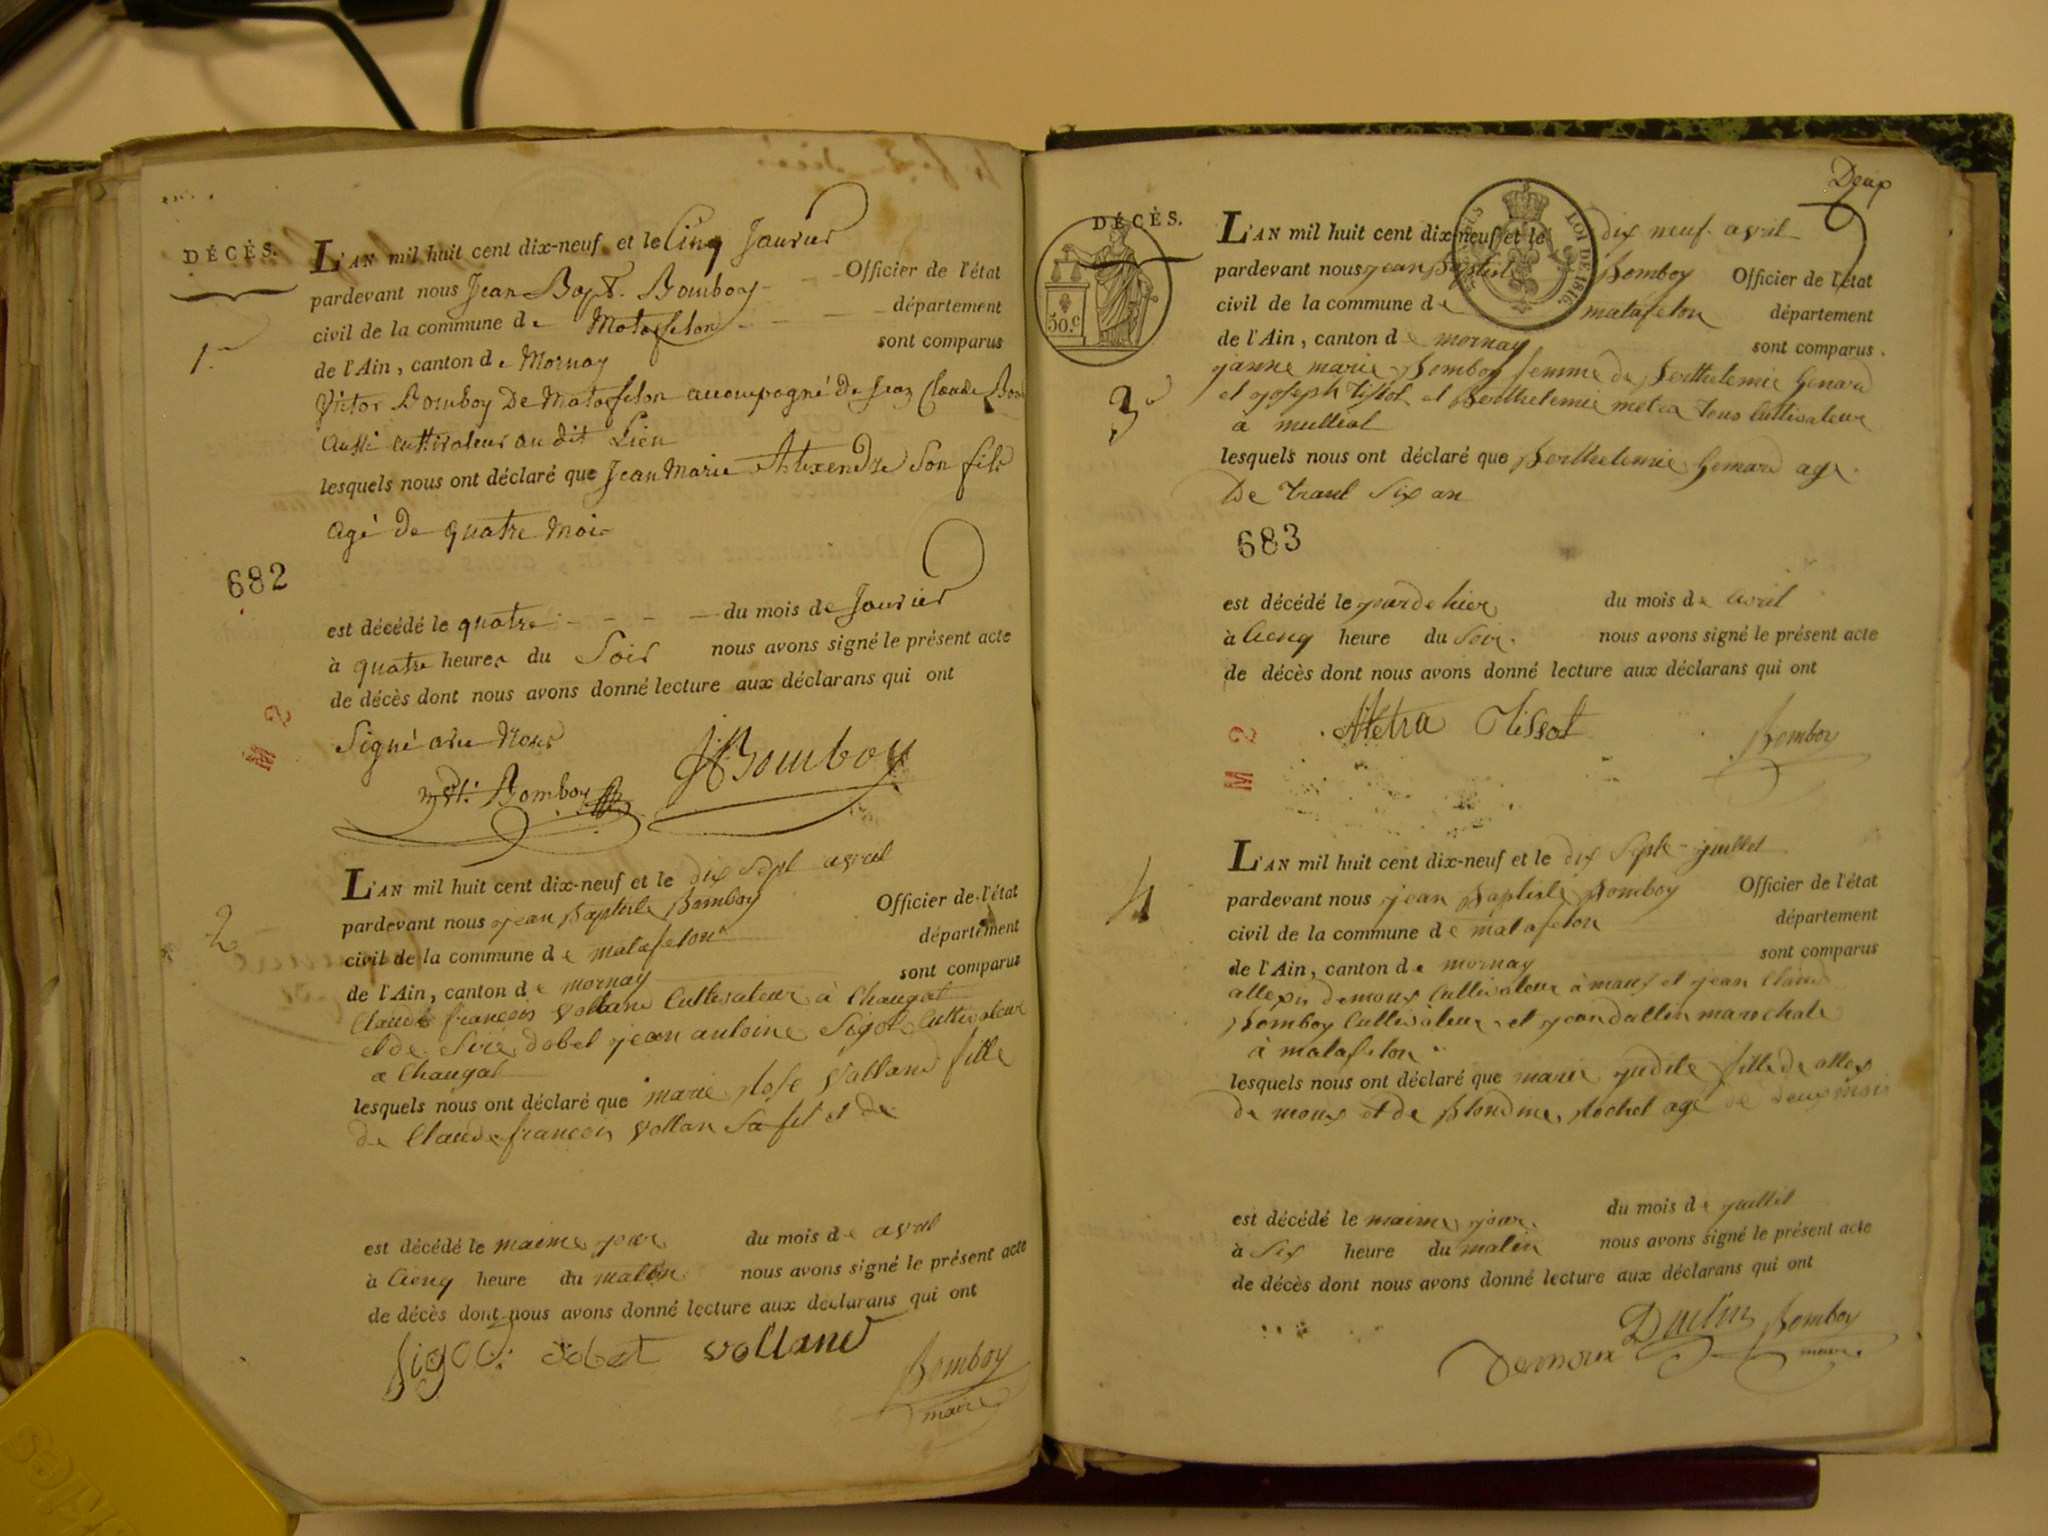 DÉCÈS.
L'AN mil huit cent dix-neuf et le Cinq Janvier
pardevant nous Jean Bapt. Bomboy Officier de l'état
civil de la commune de Matafelon département
de l'Ain, canton de Mornay sont comparus
1
Victor Bomboy De Matafelon accompagné de Jean Claude
aussi cultivateur au dit Lieu
lesquels nous ont déclaré que Jean Marie Alexendre Son fils
agé de quatre mois
682
est décédé le quatre du mois de Janvier
à quatre heures du Soir nous avons signé le présent acte
de décès dont nous avons donné lecture aux déclarans qui ont
Signé avec Nous
M 2
Bomboy JBBomboy
2
L'AN mil huit cent dix-neuf et le dix Sept avril
pardevant nous jean Baptiste Bomboy Officier de l'état
civil de la commune de matafelon département
de l'Ain, canton de mornay sont comparus
Claude françois Volland Cultivateur à Chaugat
et de jean antoine Sigot Cultivateur
a Chaugat
lesquels nous ont déclaré que marie Rose Volland fille
de Claude françois Vollan et de
est décédé le maime jour du mois de avril
à Cienq heure du matin nous avons signé le présent acte
de décès dont nous avons donné lecture aux déclarans qui ont
Sigod obet volland
Bomboy
maire
Deux
DÉCÈS.
50.c
LOI DE 1816
L'AN mil huit cent dix-neuf et le dix neuf avril
pardevant nous jean Baptist Bomboy Officier de l'état
civil de la commune de matafelon département
de l'Ain, canton de mornay sont comparus
3
janne marie Bomboy femme de Berthelemie Genard
et joseph tissot et Berthelemie metra tous Cultivateur
a
lesquels nous ont déclaré que Berthelemie Genard age
De trant Six an
683
est décédé le jour de hier du mois de avril
à Cienq heure du Soir nous avons signé le présent acte
de décès dont nous avons donné lecture aux déclarans qui ont
M 2
Metra Tissot Bomboy
4
L'AN mil huit cent dix-neuf et le dix Septe juillet
pardevant nous jean Baptiste Bomboy Officier de l'état
civil de la commune de matafelon département
de l'Ain, canton de mornay sont comparus
allexis demoux Cultivateur à et jean Claude
Bomboy Cultivateur et jean dallin marechale
à matafelon
lesquels nous ont déclaré que marie judite fille de allexis
de moux et de Blondine Rochet age de deux mois
est décédé le maime jour du mois de juillet
à Six heure du matin nous avons signé le présent acte
de décès dont nous avons donné lecture aux déclarans qui ont
Dallin Bomboy
Demoux maire